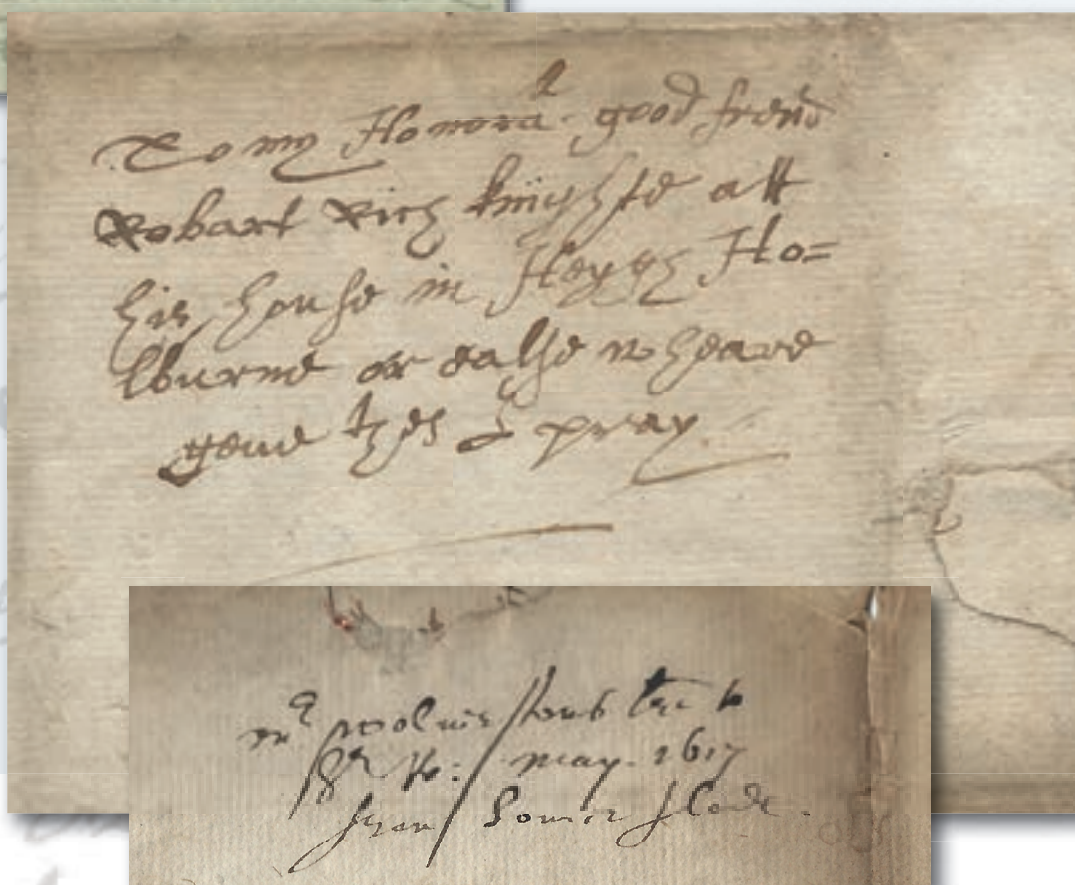 To my Honora: good frend
Robart Rich knighte att
his house in Heygh Ho=
lburne or ealse wheare
geue thes I pray
mr wolnerstons to
Sr N: / may. 1617
from Somer